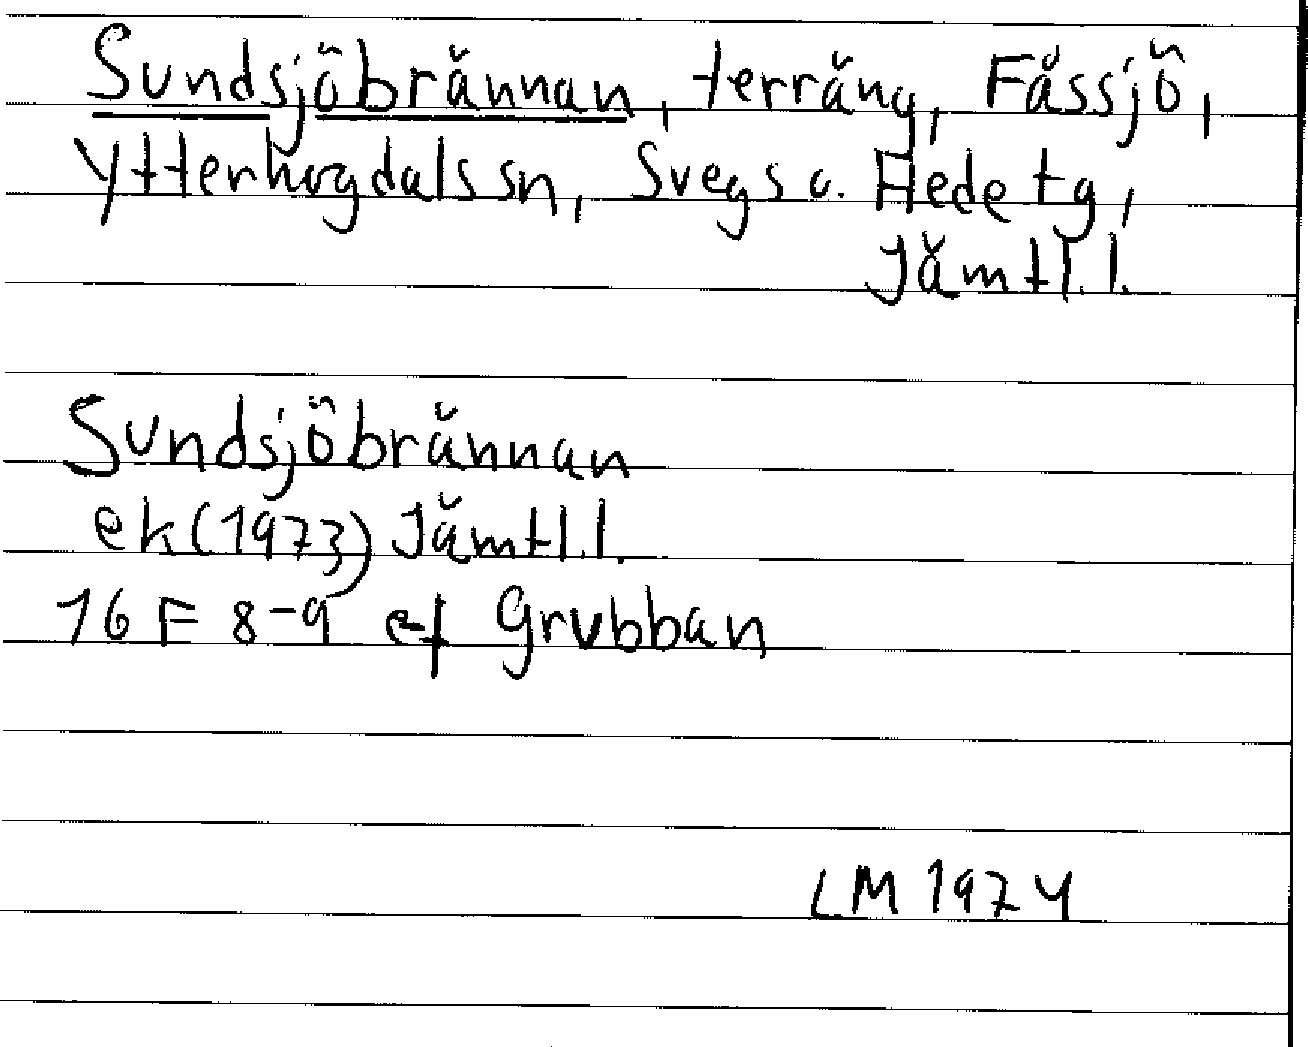 Sundsjöbrännan, terräng, Fåssjö,
Ytterhogdals sn, Svegs o. Hede tg,
Jämtl. l.
Sundsjöbrännan
ek (1973) Jämtl. l.
16 F 8-9 ef Grubban
LM 1974